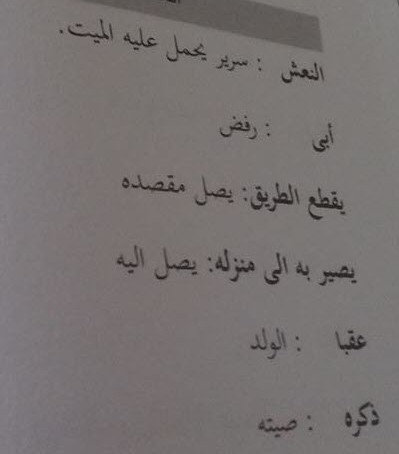 النعش : سرير يحمل عليه الميت.
أبى : رفض
يقطع الطريق: يصل مقصده
يصير به الى منزله: يصل اليه
عقبا : الولد
ذكره : صيته